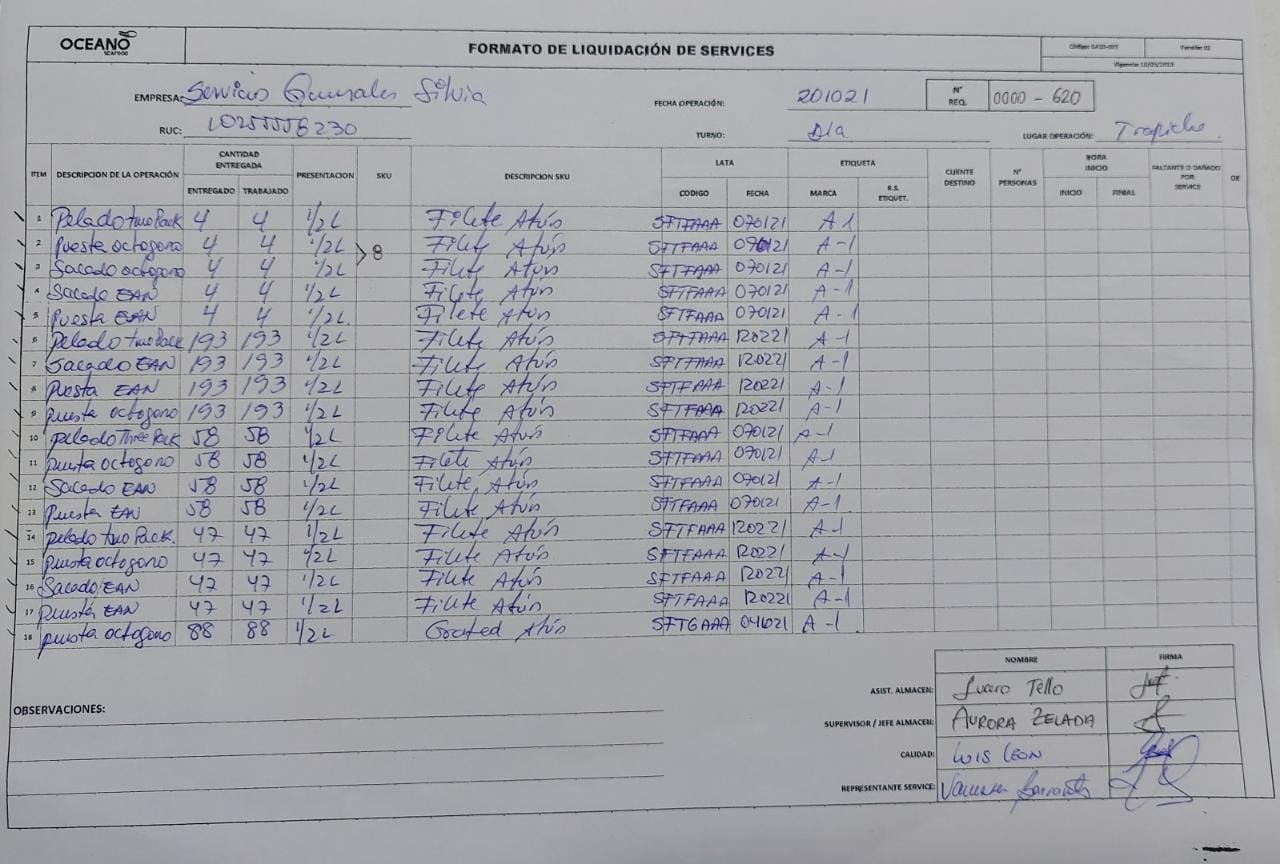 OCEANO
SEAFOOD
FORMATO DE LIQUIDACIÓN DE SERVICES
Versión: 02
EMPRESA: Servicios Gonzales Silvia
FECHA OPERACIÓN: 201021
N° REQ. 0000 - 620
RUC:
TURNO: Día
LUGAR OPERACIÓN: Trapiche
ITEM DESCRIPCION DE LA OPERACIÓN CANTIDAD ENTREGADA PRESENTACION SKU DESCRIPCION SKU LATA ETIQUETA CLIENTE DESTINO N° PERSONAS HORA INICIO FALTANTE O DAÑADO POR SERVICE DE
ENTREGADO TRABAJADO CODIGO FECHA MARCA R.S. ETIQUET. INICIO FINIAL
1 Pelado two Pack 4 4 1/2 L Filete Atún SFTFAAA 070121 A 1
2 Puesta octogono 4 4 1/2 L >8 Filete Atún SFTFAAA 070121 A-1
3 Sacado octogono 4 4 1/2 L Filete Atún SFTFAAA 070121 A-1
4 Sacado EAN 4 4 1/2 L Filete Atún SFTFAAA 070121 A-1
5 Puesta EAN 4 4 1/2 L. Filete Atún SFTFAAA 070121 A-1
6 Pelado two Pack 193 193 1/2 L Filete Atún SFTFAAA 120221 A-1
7 Sacado EAN 193 193 1/2 L Filete Atún SFTFAAA 120221 A-1
8 Puesta EAN 193 193 1/2 L Filete Atún SFTFAAA 120221 A-1
9 puesta octogono 193 193 1/2 L Filete Atún SFTFAAA 120221 A-1
10 pelado Three Pack 58 58 1/2 L Filete Atún SFTFAAA 070121 A-1
11 puesta octogono 58 58 1/2 L Filete Atún SFTFAAA 070121 A-1
12 Sacado EAN 58 58 1/2 L Filete Atún SFTFAAA 070121 A-1
13 Puesta EAN 58 58 1/2 L Filete Atún SFTFAAA 070121 A-1
14 pelado two Pack. 47 47 1/2 L Filete Atún SFTFAAA 120221 A-1
15 puesta octogono 47 47 1/2 L Filete Atún SFTFAAA 120221 A-1
16 Sacado EAN 47 47 1/2 L Filete Atún SFTFAAA 120221 A-1
17 Puesta EAN 47 47 1/2 L Filete Atún SFTFAAA 120221 A-1
18 puesta octogono 88 88 1/2 L Grated Atún SFTGAAA 041021 A-1
NOMBRE FIRMA
ASIST. ALMACEN: Lucero Tello
OBSERVACIONES:
SUPERVISOR / JEFE ALMACEN: AURORA ZELADA
CALIDAD: LUIS LEON
REPRESENTANTE SERVICE: Vanessa